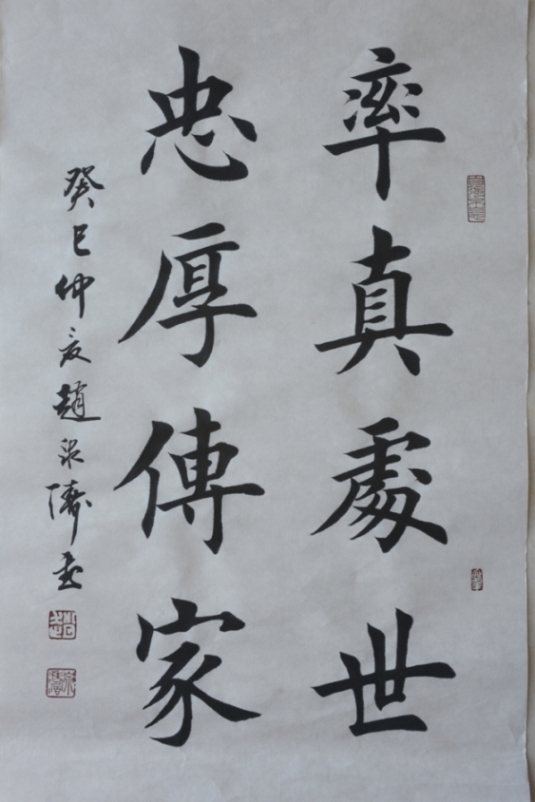 率真處世
忠厚傳家
癸巳仲夏趙